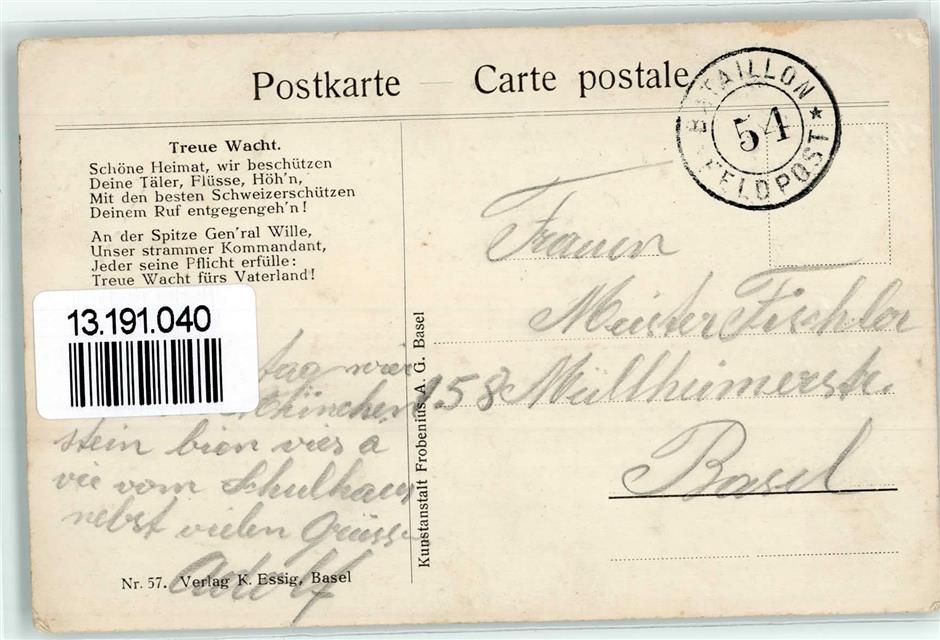 Postkarte — Carte postale
BATAILLON ★
54
FELDPOST
Treue Wacht.
Schöne Heimat, wir beschützen
Deine Täler, Flüsse, Höh'n,
Mit den besten Schweizerschützen
Deinem Ruf entgegengeh'n!
An der Spitze Gen'ral Wille,
Unser strammer Kommandant,
Jeder seine Pflicht erfülle:
Treue Wacht fürs Vaterland!
13.191.040
München
stein bien vies a
vie vom Schulhaus
nebst vielen Grüsse
Adolf
Nr. 57. Verlag K. Essig, Basel
Kunstanstalt Frobenius A. G. Basel
Frauen
Meister Fischler
158 Müllheimerstr.
Basel